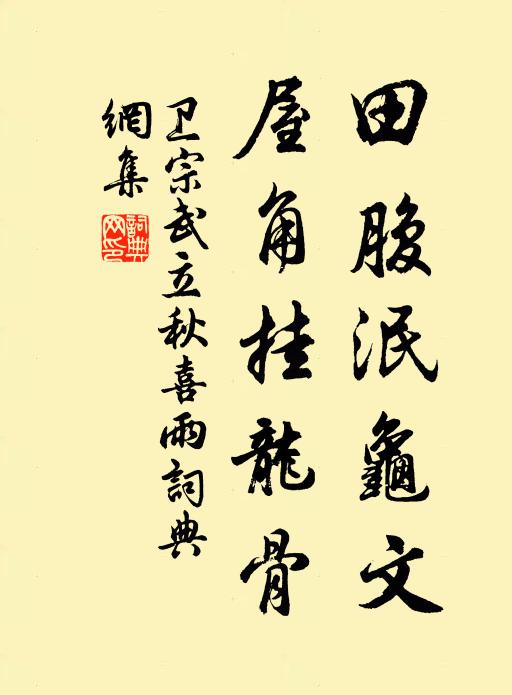 田腹泯龜文
屋角挂龍骨
卫宗武立秋喜雨詞典
網集
詞典
网印